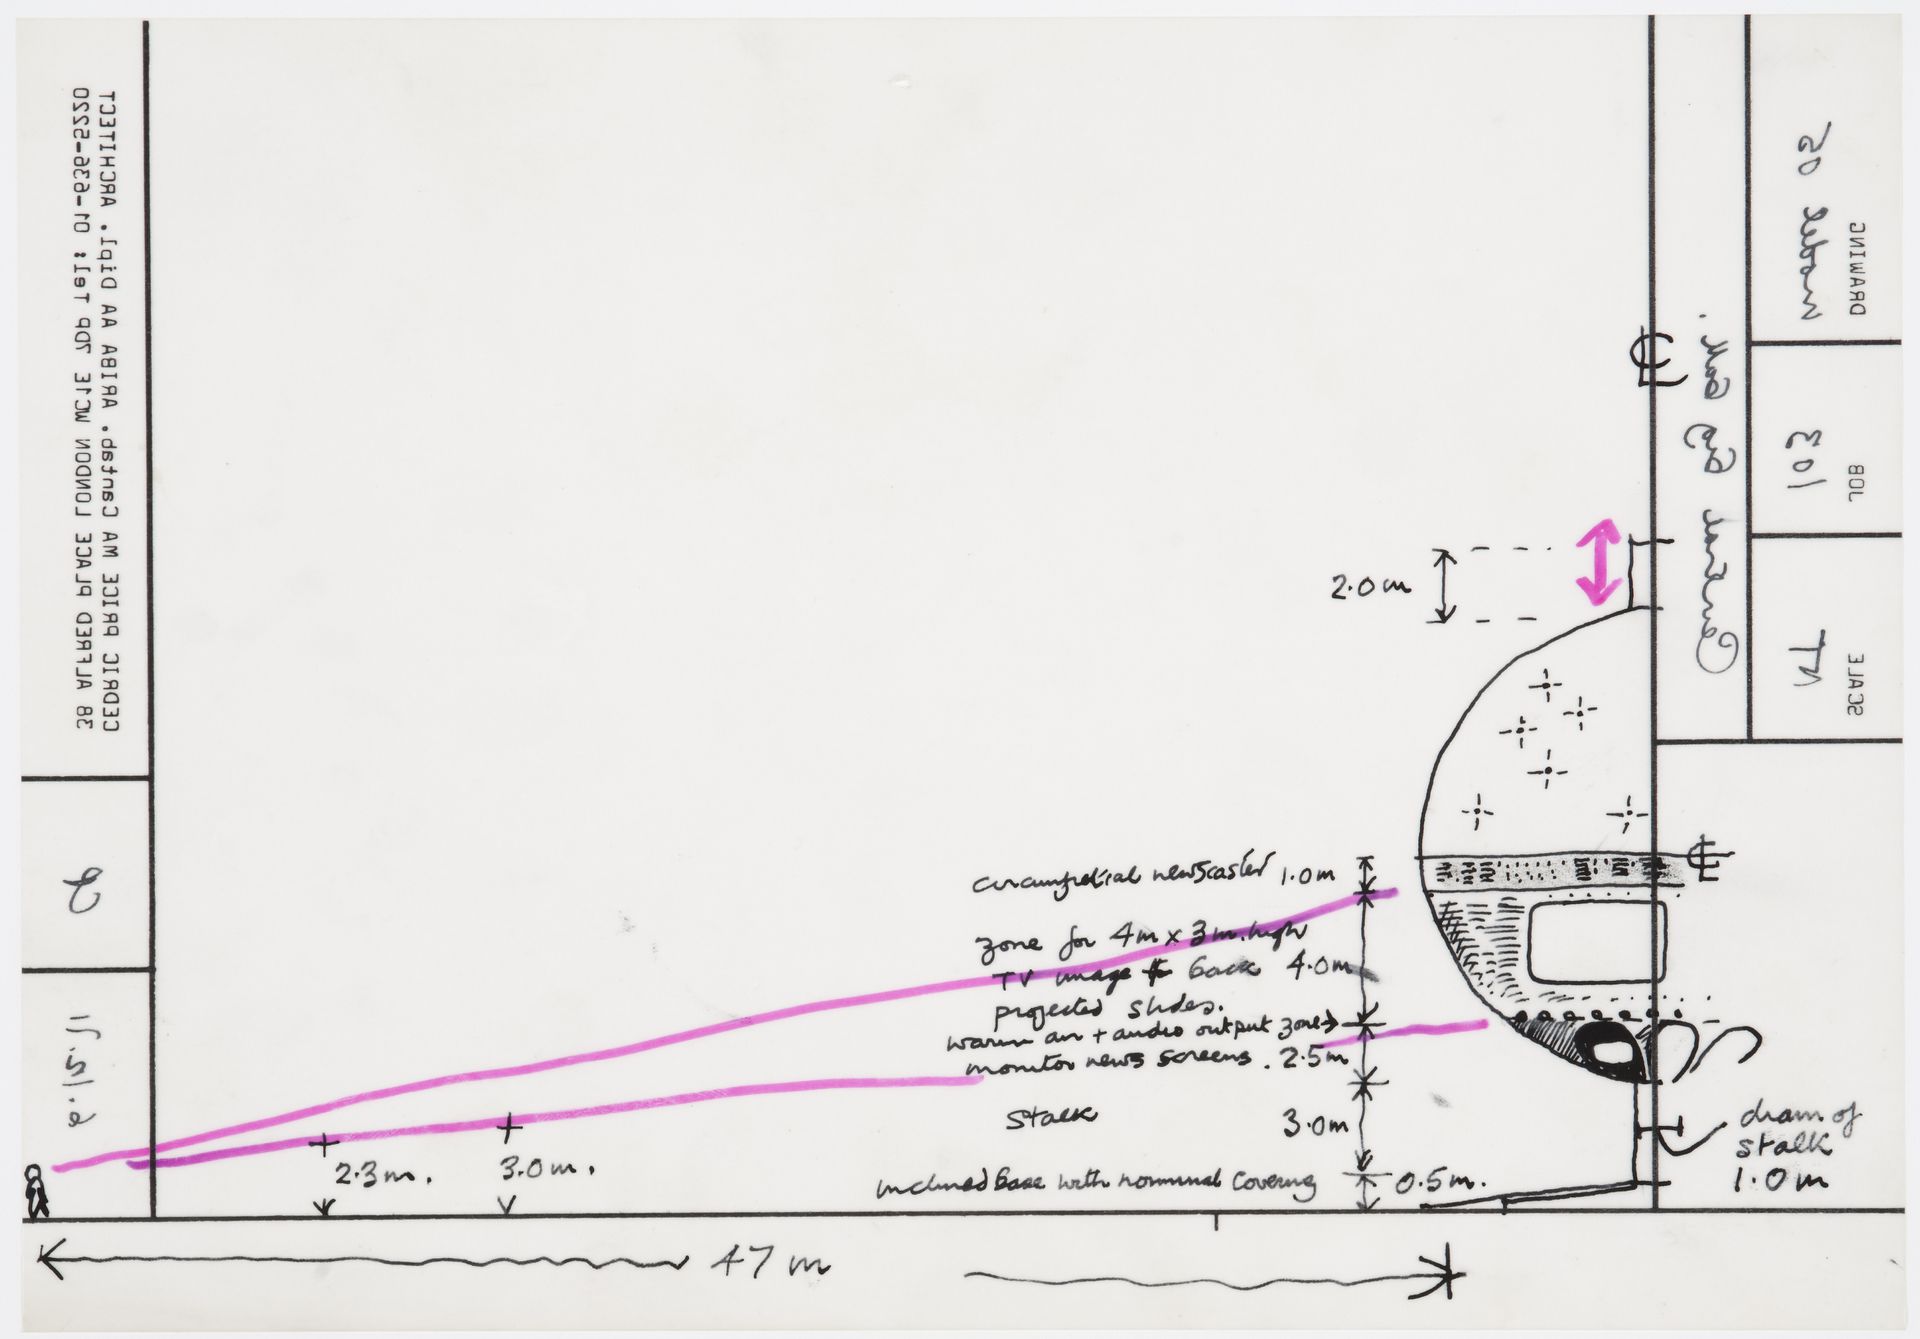 CEDRIC PRICE MA Cantab. ARIBA AA Dipl. ARCHITECT
38 ALFRED PLACE LONDON WC1E 7DP Tel: 01-636-5220
DRAWING
model
JOB
103
SCALE
General
2.0m
newscaster 1.0m
zone for 4m x 3m.high
TV image back 4.0m
projected slides.
warm air + audio output zone→
monitor news screens. 2.5m
Stalk 3.0m
inclined base with nominal covering 0.5m.
2.3m.
3.0m.
47 m
stalk
1.0m